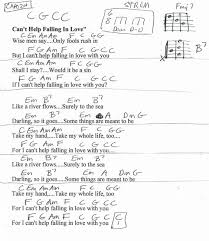 CAPO 2 STRUM Fmaj7
C G C C
D-D
Can't Help Falling In Love"
C Em Am Am F C G G
Wise men say....Only fools rush in
F G Am F C G C C
But I can't help falling in love with you
C Em Am Am F C G G
Shall I stay?....Would it be a sin
F G Am F C G C C
If I can't help falling in love with you?
Em B7 Em B7
Like a river flows...Surely to the sea
Em B7 Em A Dm G
Darling, so it goes....Some things are meant to be
C Em Am Am F C G G
Take my hand....Take my whole life, too
F G Am F C G C C
For I can't help falling in love with you
Em B7 Em B7
Like a river flows....Surely to the sea
Em B7 Em A Dm G
Darling, so it goes....Some things are meant to be
C Em Am Am F C G G
Take my hand....Take my whole life, too
F G Am F C G C C
For I can't help falling in love with you
F G Am F C G C C
For I can't help falling in love with you